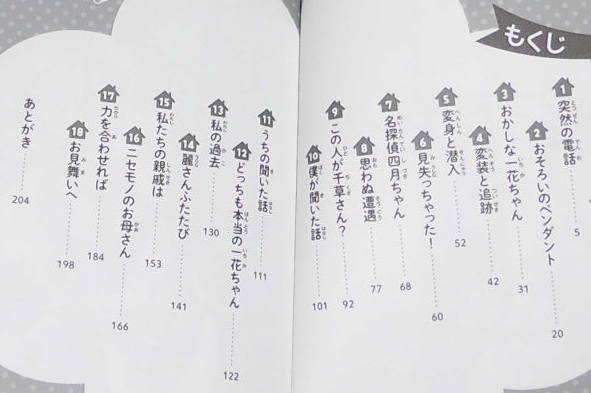 もくじ
1 突然の電話 5
2 おそろいのペンダント 20
3 おかしな一花ちゃん 31
4 変装と追跡 42
5 変身と潜入 52
6 見失っちゃった! 60
7 名探偵四月ちゃん 68
8 思わぬ遭遇 77
9 この人が千草さん? 92
10 僕が聞いた話 101
11 うちの聞いた話 111
12 どっちも本当の一花ちゃん 122
13 私の過去 130
14 麗さんふたたび 141
15 私たちの親戚は 153
16 ニセモノのお母さん 166
17 力を合わせれば 184
18 お見舞いへ 198
あとがき 204